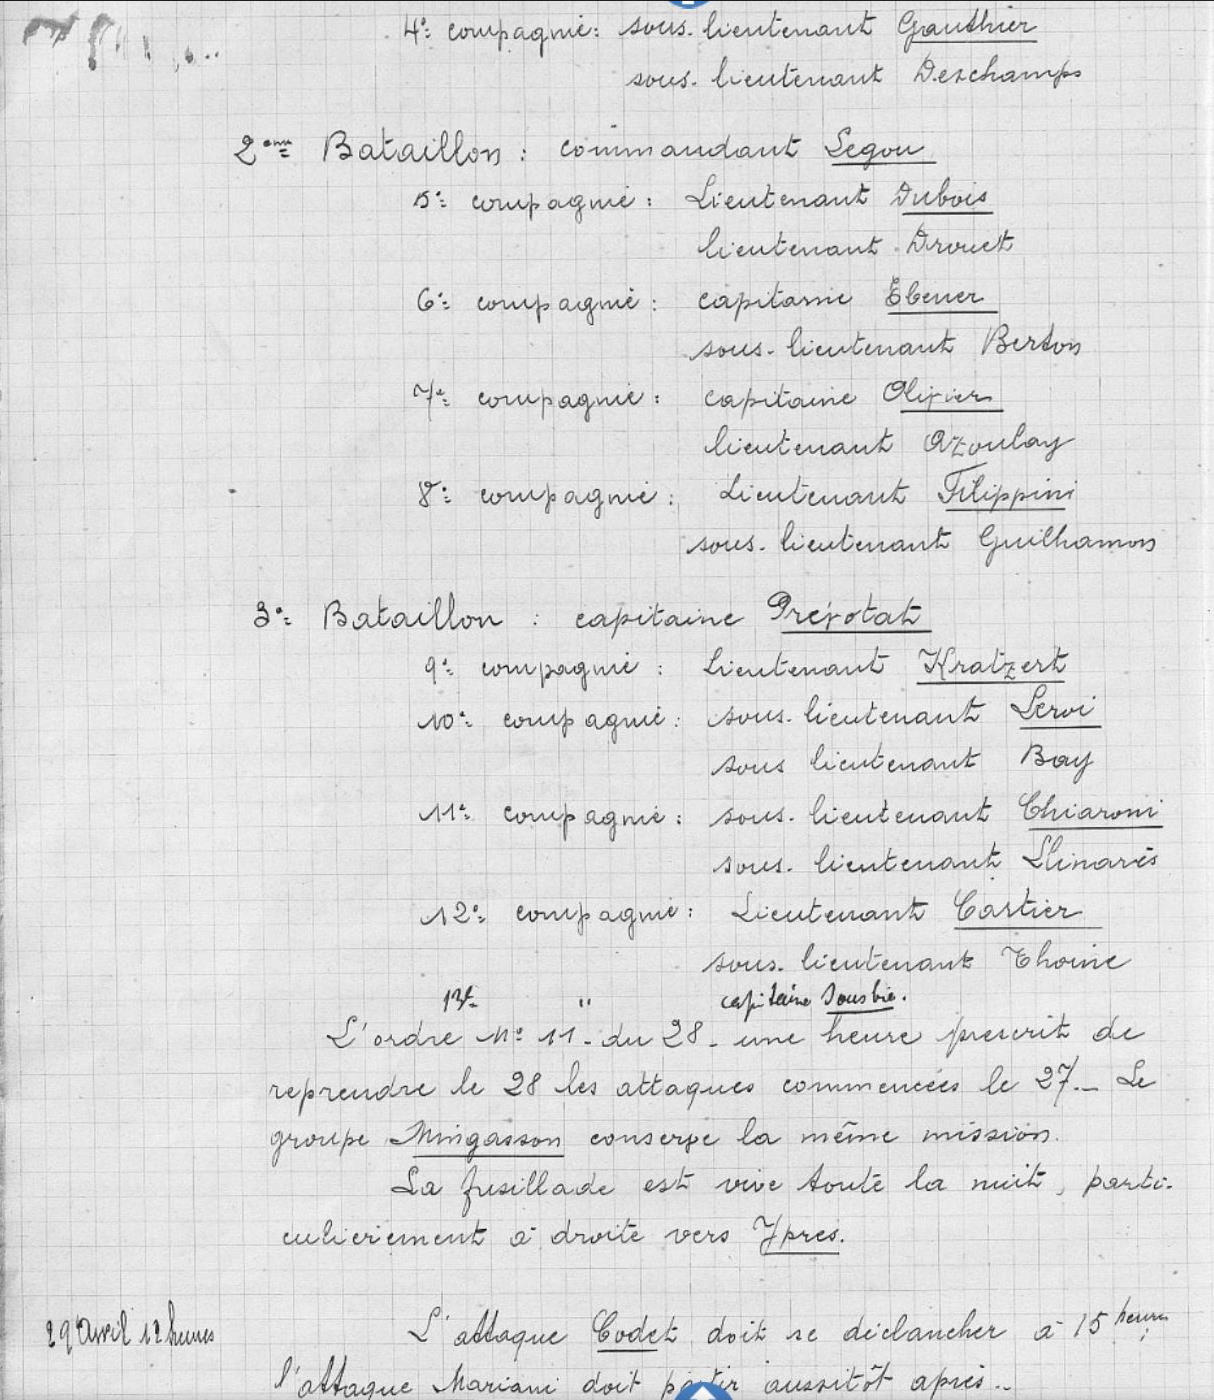 4e: compagnie: sous-lieutenant Gauthier
sous-lieutenant Deschamps
2eme Bataillon: commandant Legou
5e: compagnie: Lieutenant Dubois
lieutenant Drouet
6e: compagnie: capitaine Ebener
sous-lieutenant Berton
7e: compagnie: capitaine Olivier
lieutenant Azoulay
8e: compagnie: Lieutenant Filippini
sous-lieutenant Guilhamon
3e: Bataillon: capitaine Prévotat
9e: compagnie: Lieutenant Kratzert
10e: compagnie: sous-lieutenant Leroi
sous lieutenant Bay
11e: compagnie: sous-lieutenant Chiaroni
sous-lieutenant Llinarès
12e: compagnie: Lieutenant Cartier
sous-lieutenant Thoine
13e " capitaine Sousbie.
L'ordre No 11 - du 28 - une heure prescrit de
reprendre le 28 les attaques commencées le 27 _ Le
groupe Mingasson conserve la même mission.
La fusillade est vive toute la nuit, parti-
culièrement à droite vers Ypres.
29 Avril 12 heures
L'attaque Codet doit se déclancher à 15 heures;
l'attaque Mariani doit partir aussitôt après..